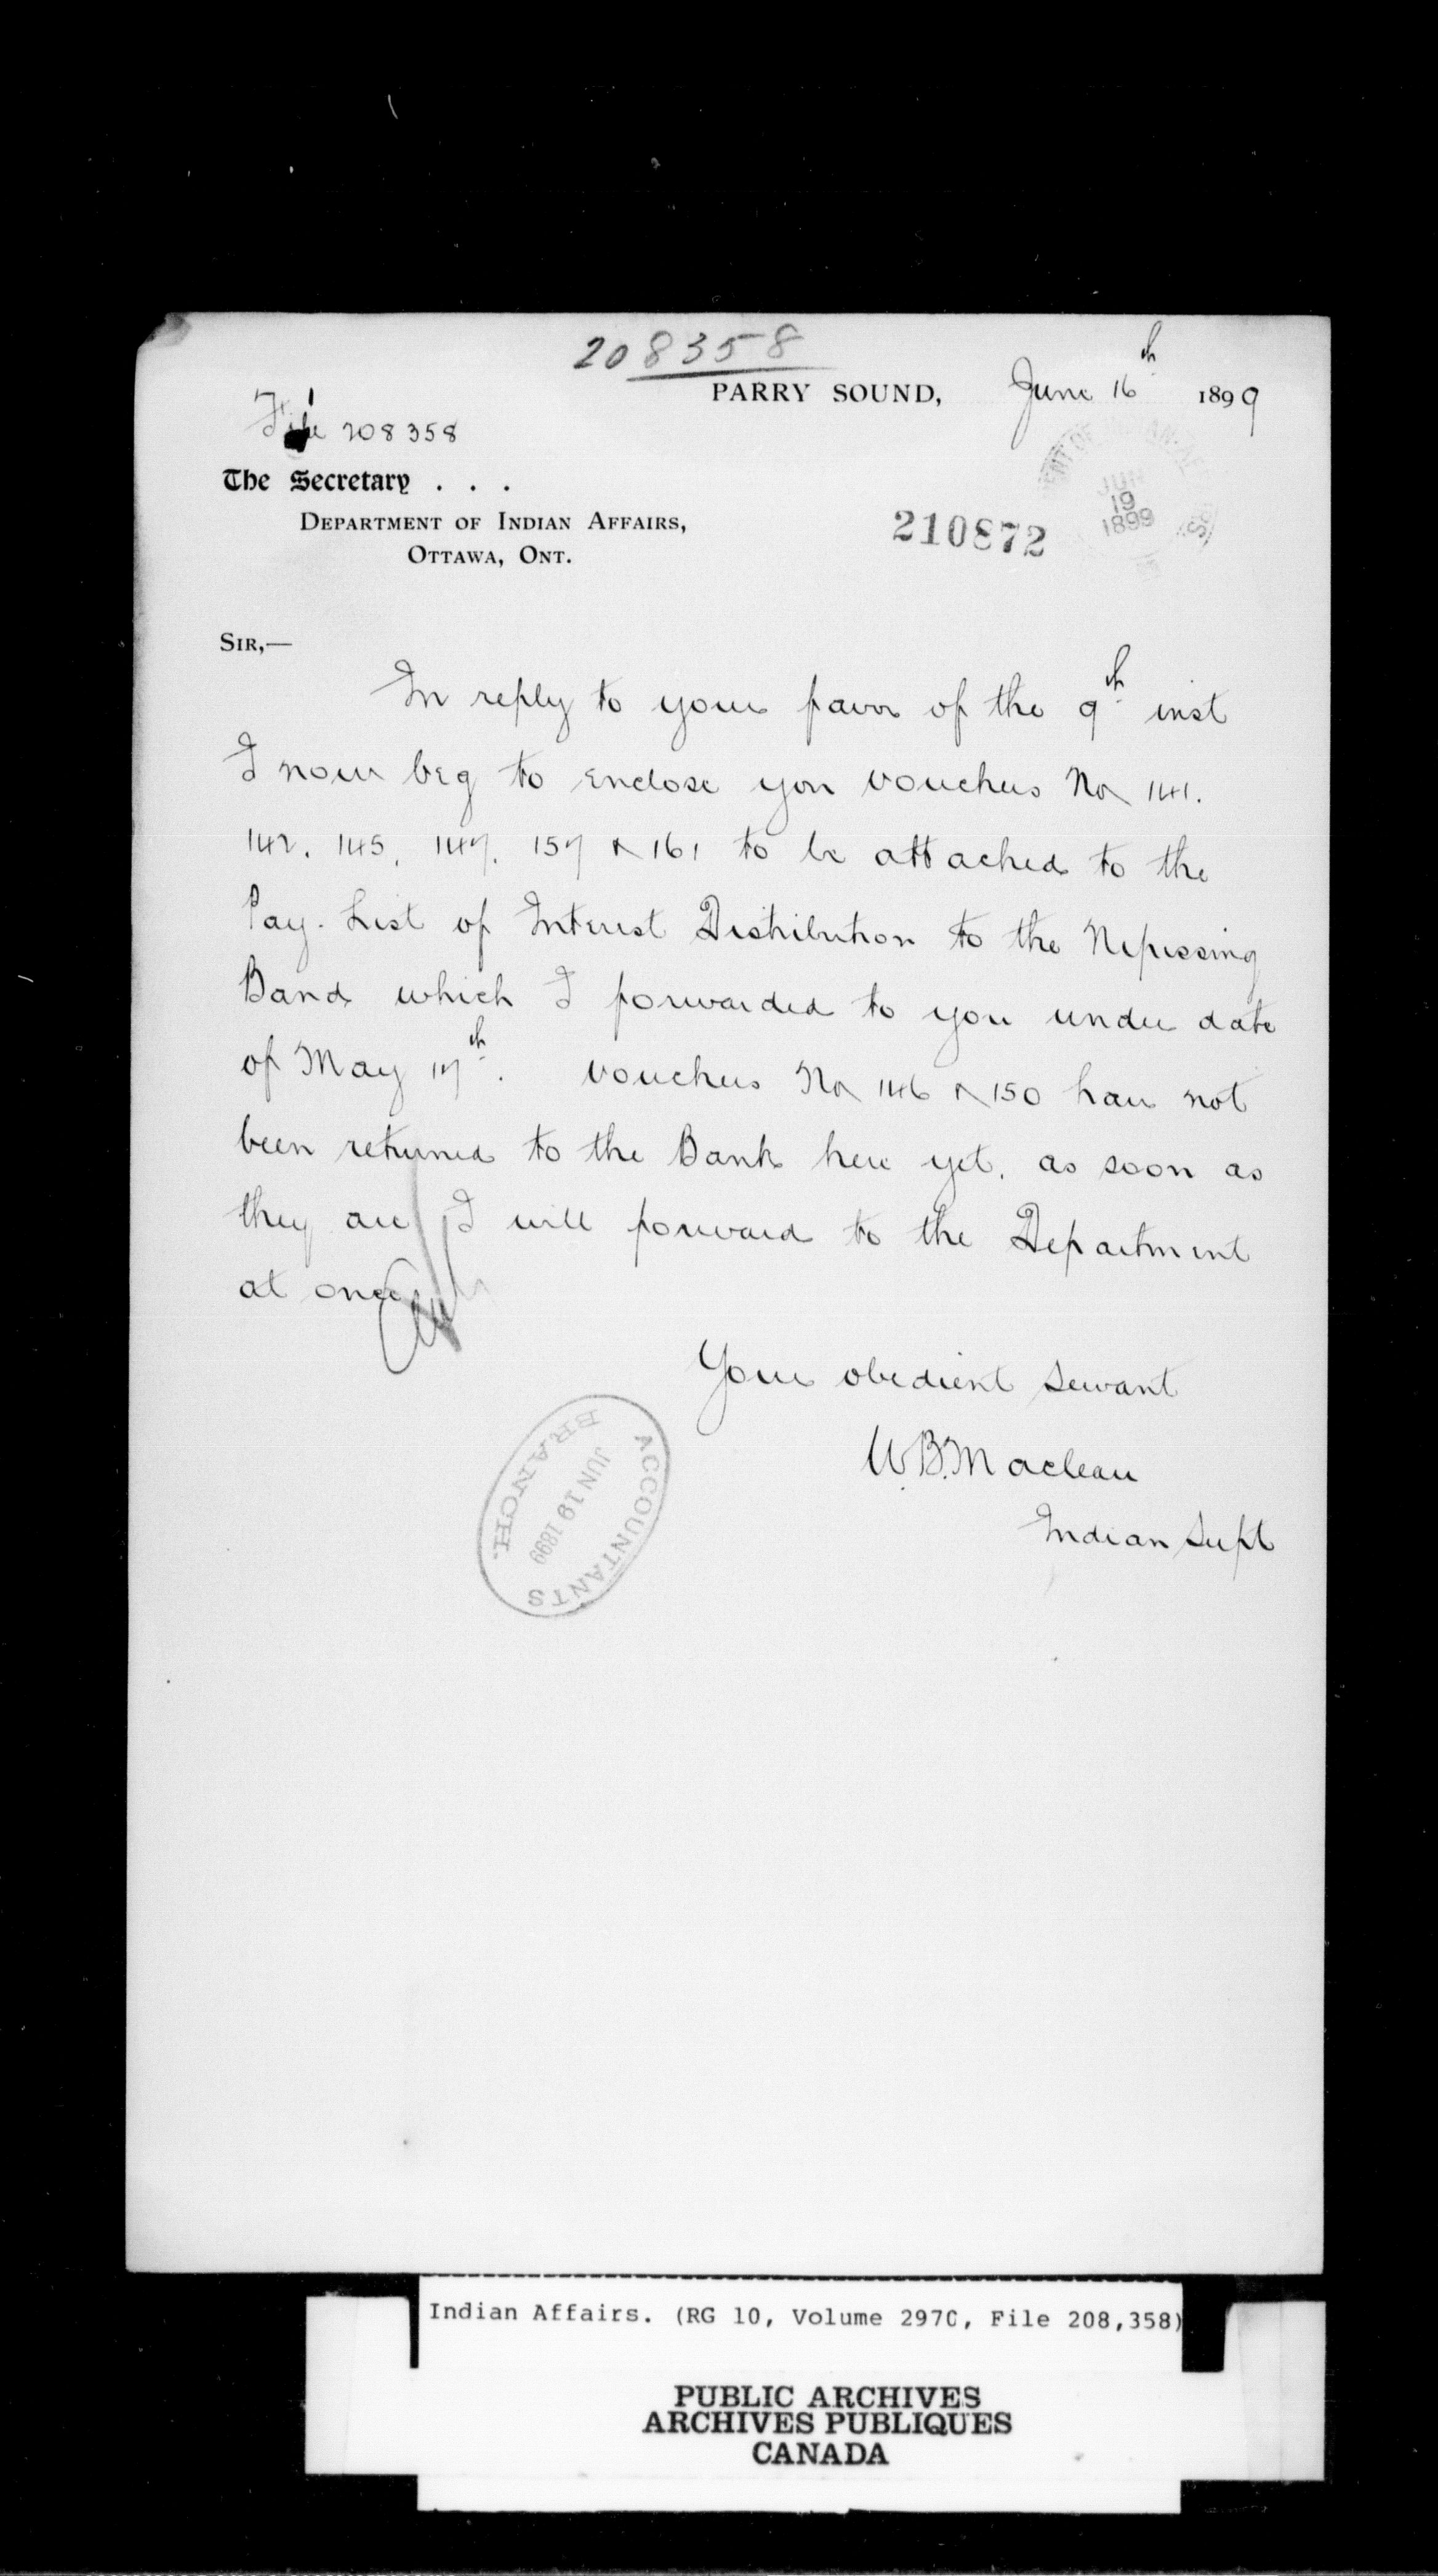 208358
PARRY SOUND, June 16th 1899
File 208358
The Secretary . . .
DEPARTMENT OF INDIAN AFFAIRS,
OTTAWA, ONT.
210872
JUN
19
1899
SIR,—
In reply to your favor of the 9th inst
I now beg to enclose you vouchers No 141.
142. 145. 147. 157 & 161 to be attached to the
Pay. List of Interest Distribution to the Nipissing
Band which I forwarded to you under date
of May 17th. Vouchers No 146 & 150 have not
been returned to the Bank here yet. as soon as
they are I will forward to the Department
at once
Your obedient servant
W.B. Maclean
Indian Supt
ACCOUNTANTS
JUN 19 1899
BRANCH.
Indian Affairs. (RG 10, Volume 2970, File 208,358)
PUBLIC ARCHIVES
ARCHIVES PUBLIQUES
CANADA